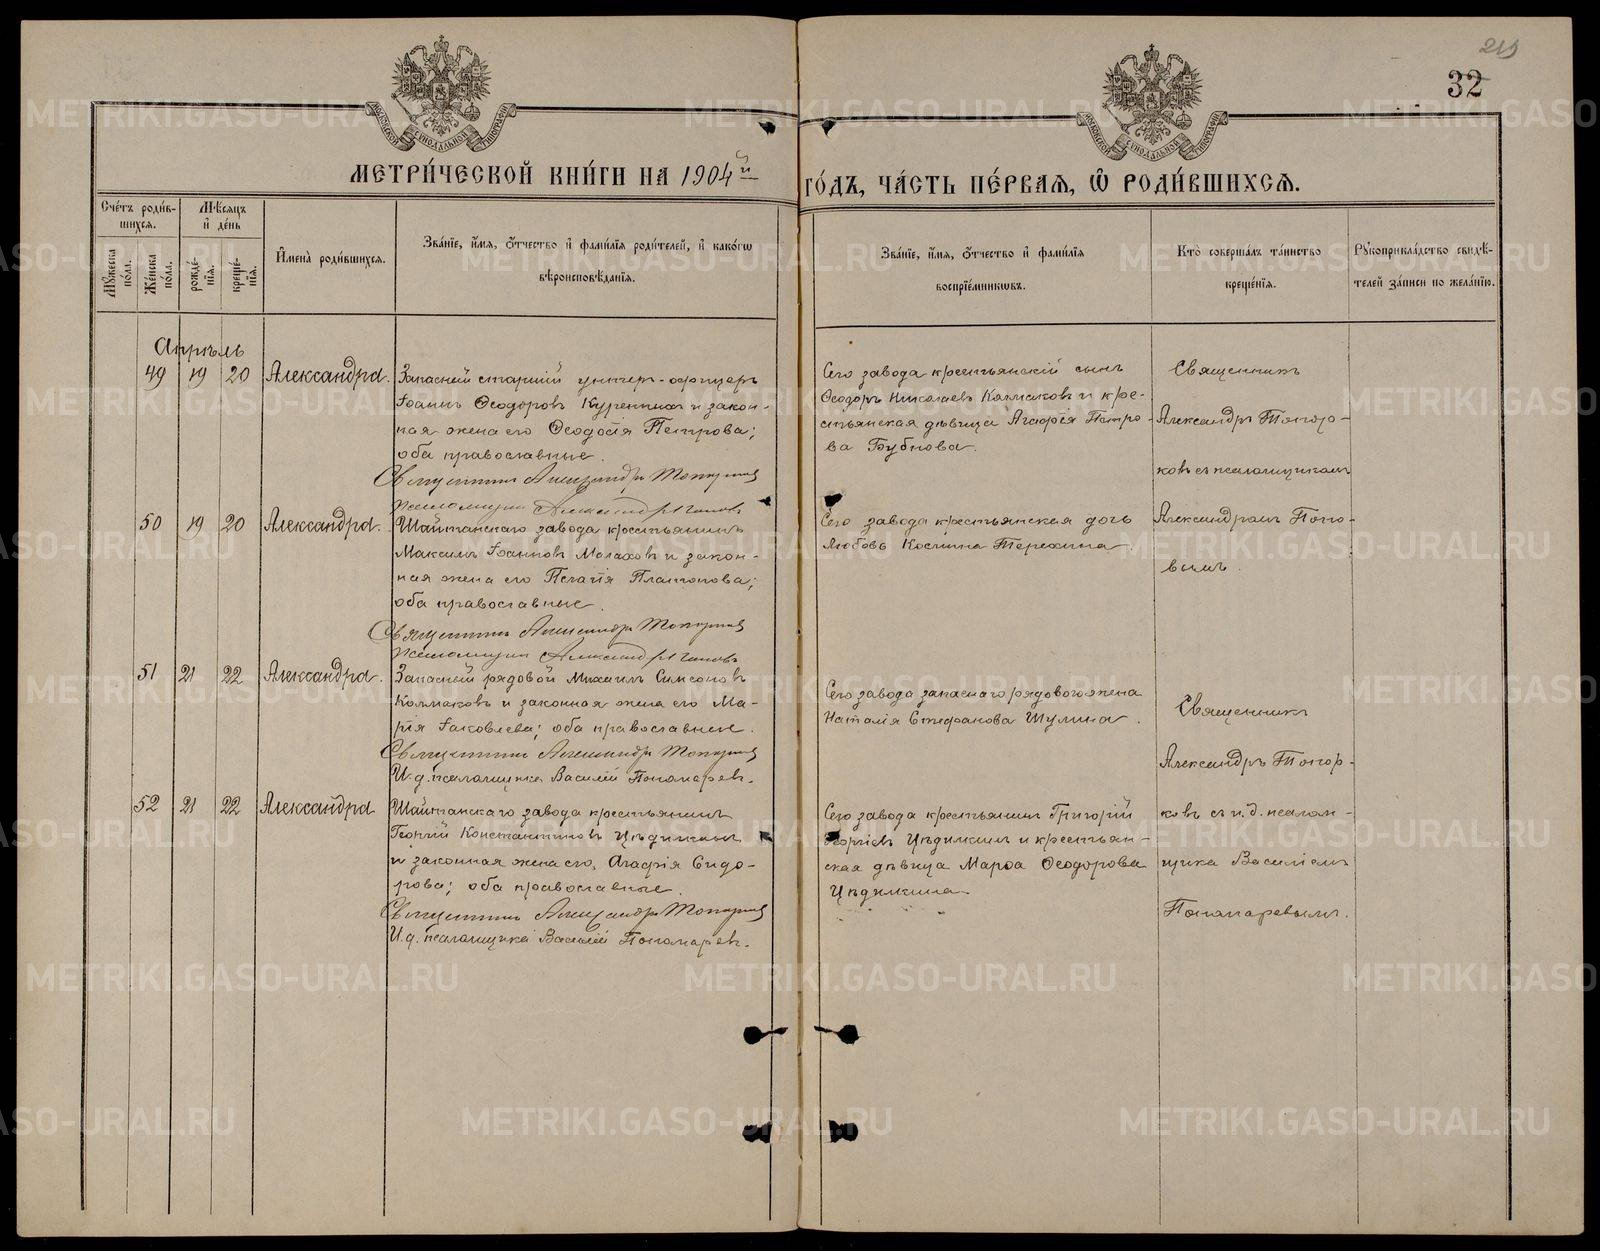 219
32
МЕТРИ́ЧЕСКОЙ КНИ́ГИ НА 1904й
ГО́ДЪ, ЧА́СТЬ ПЕ́РВАЯ, Ѽ РОДИ́ВШИХСЯ.
Сче́тъ роди́в-
шихся.
Мѣ́сяцъ
и де́нь
Мꙋ́жеска по́ла.
Же́нска по́ла.
рожде́-
нїя.
креще́-
нїя.
Имена̀ роди́вшихся.
Зва́нїе, и́мя, ѻ́тчество и фами́лїя роди́телей, и како́гѡ
вѣроисповѣ́данїя.
Зва́нїе, и́мя, ѻ́тчество и фами́лїя
воспрїе́мникѡвъ.
Кто̀ соверша́лъ та́инство
креще́нїя.
Рꙋкоприкла́дство свидѣ́-
телей за́писи по жела́нїю.
Апрѣль
49 19 20 Александра.
Запасный старшій унтеръ-офицеръ
Іоаннъ Ѳеодоровъ Куренных и закон-
ная жена его Ѳеодосія Петрова;
оба православные.
Священникъ Александръ Топорковъ
Псаломщикъ Александръ Поповъ
Сего завода крестьянскій сынъ
Ѳеодоръ Николаевъ Калмаковъ и кре-
стьянская дѣвица Агафія Петро-
ва Бубнова.
Священникъ
Александръ Топор-
ковъ съ псаломщикомъ
Александромъ Попо-
вымъ.
50 19 20 Александра.
Шайтанскаго завода крестьянинъ
Максимъ Іоанновъ Малаховъ и закон-
ная жена его Пелагія Платонова;
оба православные.
Священникъ Александръ Топорковъ
Псаломщикъ Александръ Поповъ
Сего завода крестьянская дочь
Любовь Космина Терехина.
51 21 22 Александра.
Запасный рядовой Михаилъ Симеоновъ
Колмаковъ и законная жена его Ма-
рія Іаковлева; оба православные.
Священникъ Александръ Топорковъ
И. д. псаломщика Василій Пономаревъ.
Сего завода запаснаго рядового жена
Наталія Стефанова Шулина.
Священникъ
Александръ Топор-
ковъ съ и. д. псалом-
щика Василіемъ
Пономаревымъ.
52 21 22 Александра
Шайтанскаго завода крестьянинъ
Георгій Константиновъ Цѣдилкинъ
и законная жена его, Агафія Сидо-
рова; оба православные.
Священникъ Александръ Топорковъ
И. д. псаломщика Василій Пономаревъ.
Сего завода крестьянинъ Григорій
Георгіевъ Цѣдилкинъ и крестьян-
ская дѣвица Марѳа Ѳеодорова
Цѣдилкина
METRIKI.GASO-URAL.RU